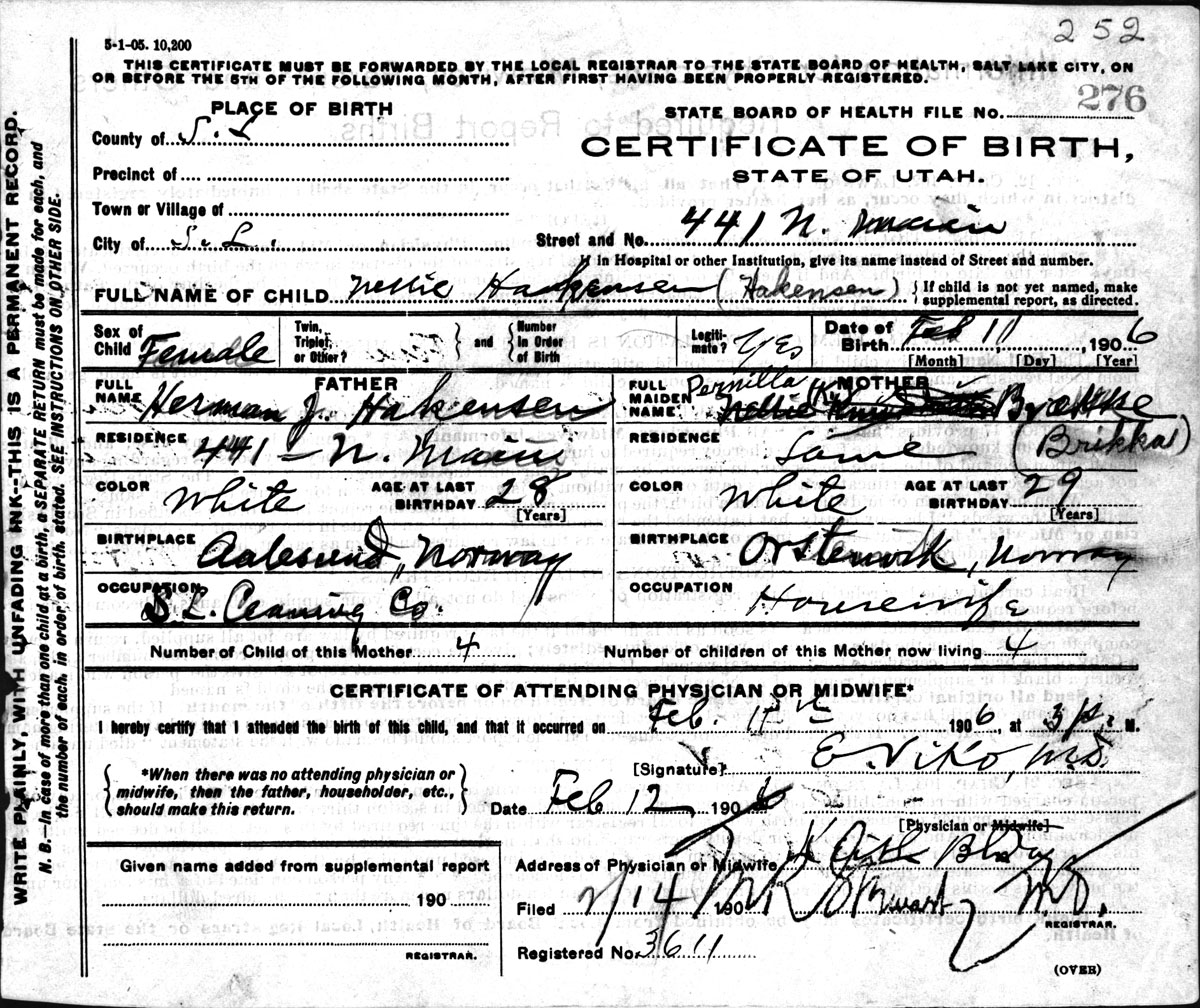 252
5-1-05. 10,200
THIS CERTIFICATE MUST BE FORWARDED BY THE LOCAL REGISTRAR TO THE STATE BOARD OF HEALTH, SALT LAKE CITY, ON
OR BEFORE THE 5TH OF THE FOLLOWING MONTH, AFTER FIRST HAVING BEEN PROPERLY REGISTERED.
276
PLACE OF BIRTH
STATE BOARD OF HEALTH FILE No.
County of S. L
CERTIFICATE OF BIRTH,
STATE OF UTAH.
Precinct of
Town or Village of
City of S. L.
Street and No. 441 N. Main
If in Hospital or other Institution, give its name instead of Street and number.
FULL NAME OF CHILD Nellie Hakensen (Hakensen) { If child is not yet named, make
supplemental report, as directed.
Sex of Child Female
Twin, Triplet, or Other? } and { Number in Order of Birth
Legiti-mate? Yes
Date of Birth Feb 11, 1906
[Month] [Day] [Year]
FATHER
FULL NAME Herman J. Hakensen
RESIDENCE 441 - N. Main
COLOR White AGE AT LAST BIRTHDAY 28
[Years]
BIRTHPLACE Aalesund, Norway
OCCUPATION S. L. Cleaning Co.
MOTHER
FULL MAIDEN NAME Pernilla Nellie Brekke
(Brikka)
RESIDENCE Same
COLOR White AGE AT LAST BIRTHDAY 29
[Years]
BIRTHPLACE Norway
OCCUPATION Housewife
Number of Child of this Mother 4
Number of children of this Mother now living 4
CERTIFICATE OF ATTENDING PHYSICIAN OR MIDWIFE*
I hereby certify that I attended the birth of this child, and that it occurred on Feb. 11th 1906, at 3 p. M.
{ *When there was no attending physician or
midwife, then the father, householder, etc.,
should make this return. }
[Signature] E. Viko, M.D.
Date Feb 12 1906
[Physician or Midwife]
Given name added from supplemental report
190
REGISTRAR.
Address of Physician or Midwife
Filed 2/14 190 Stewart M.D.
REGISTRAR.
Registered No. 3611
(OVER)
WRITE PLAINLY, WITH UNFADING INK--THIS IS A PERMANENT RECORD.
N. B.--In case of more than one child at a birth, a SEPARATE RETURN must be made for each, and
the number of each, in order of birth, stated. SEE INSTRUCTIONS ON OTHER SIDE.